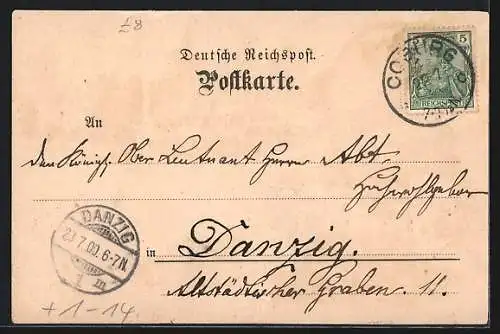 £8
Deutsche Reichspost.
Postkarte.
5
REICHSPOST
COBURG
An
den Königl. Ober Leutnant Herrn Abt
Hochwohlgeboren
DANZIG
23.7.00.6-7N.
1 m
in Danzig.
Altstädtischer Graben 11.
+1-14.